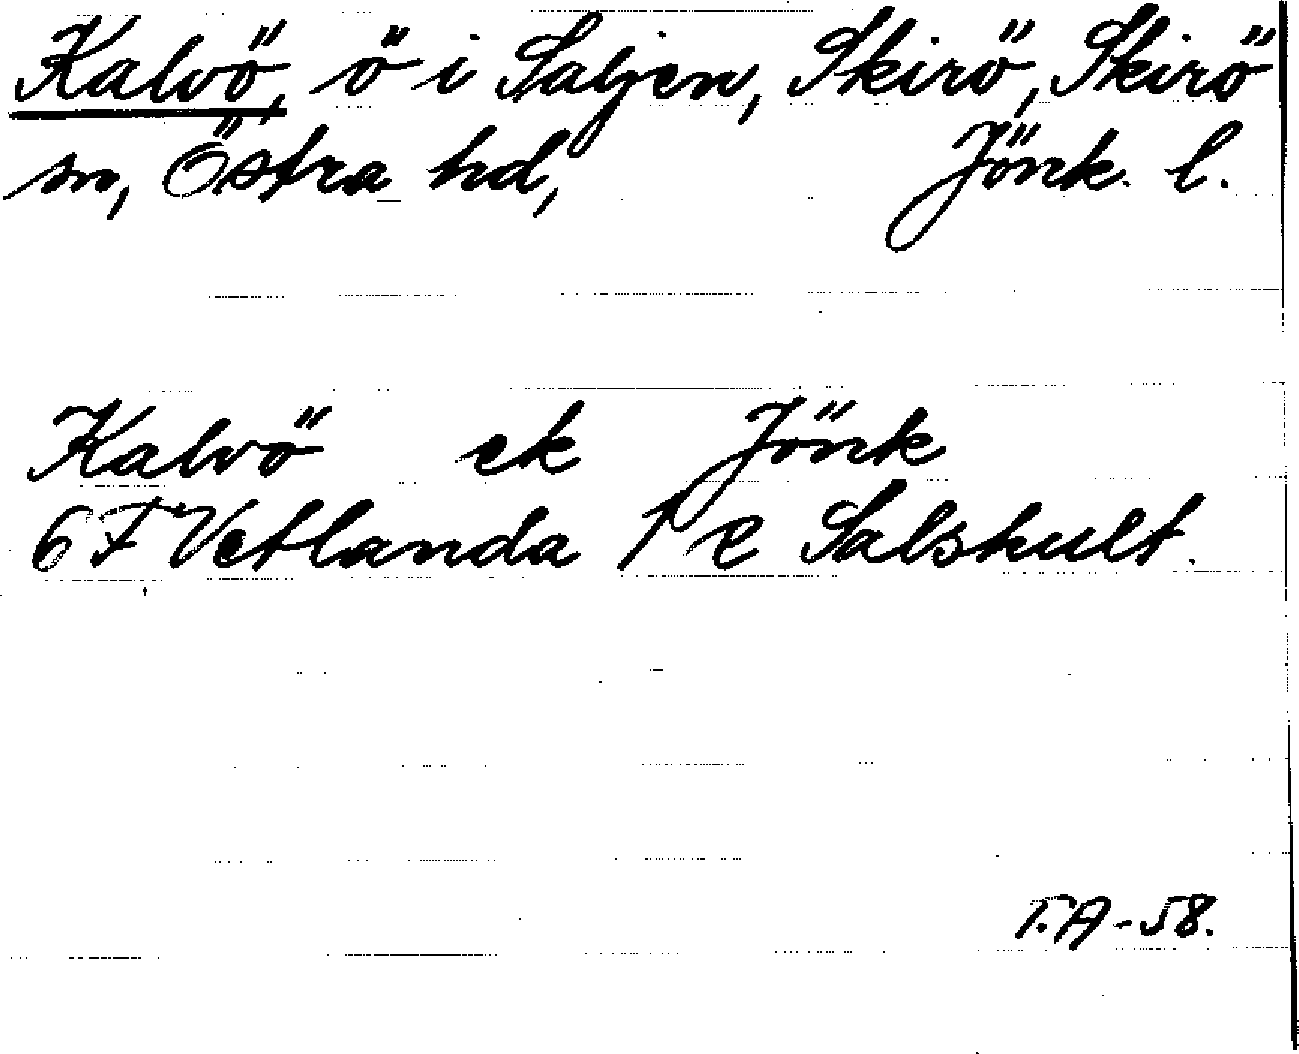 Kalvö, ö i Saljen, Skirö, Skirö
sn, Östra hd, Jönk. l.
Kalvö ek Jönk
6F Vetlanda 1 e Salshult.
T.A-58.